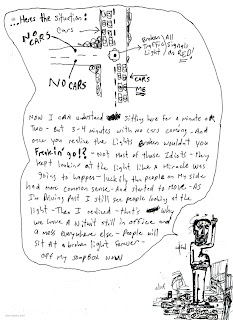 ...Heres the situation:
NO CARS
Cars →
Broken/All
Traffic Signals
Light/as RED!
NO CARS
CARS
ME
Now I can understand sitting here for a minute or
Two - But 3-4 minutes with no cars coming. And
once you realise the lights Broken wouldn't you
Freak-in' go!? - Not most of those Idiots - they
kept lookin' at the light like a miracle was
going to happen - luckily the people on My side
had more common sense - And started to MOVE - AS
I'm Driving Past I still see people looking at the
light - Then I realised - that's Why
we have a Nitwit still in office and
a mess everywhere else - People will
sit At a broken light forever -
OFF my soapbox NOW